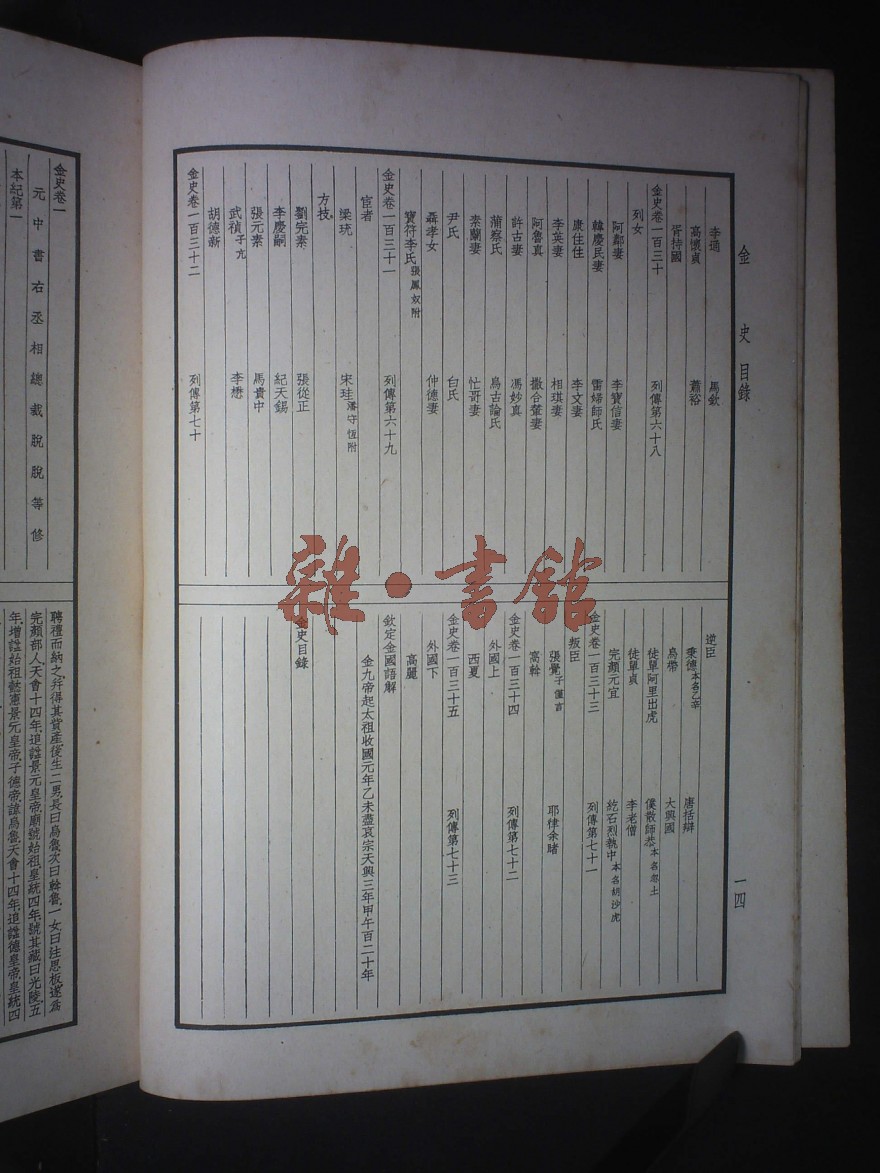 金史目錄
一四
李通 馬欽
高懷貞 蕭裕
胥持國
金史卷一百三十 列傳第六十八
列女
阿鄰妻 李寶信妻
韓慶民妻 雷婦師氏
康住住 李文妻
李英妻 相琪妻
阿魯真 撒合輦妻
許古妻 馮妙真
蒲察氏 烏古論氏
素蘭妻 忙哥妻
尹氏 白氏
聶孝女 仲德妻
寶符李氏張鳳奴附
金史卷一百三十一 列傳第六十九
宦者
梁珫 宋珪潘守恆附
方技
劉完素 張從正
李慶嗣 紀天錫
張元素 馬貴中
武禎子亢 李懋
胡德新
金史卷一百三十二 列傳第七十
逆臣
秉德本名乙辛 唐括辯
烏帶 大興國
徒單阿里出虎 僕散師恭本名忽土
徒單貞 李老僧
完顏元宜 紇石烈執中本名胡沙虎
金史卷一百三十三 列傳第七十一
叛臣
張覺子僅言 耶律余睹
窩斡
金史卷一百三十四 列傳第七十二
外國上
西夏
金史卷一百三十五 列傳第七十三
外國下
高麗
欽定金國語解
金九帝起太祖收國元年乙未盡哀宗天興三年甲午百二十年
金史目錄
雜·書館
金史卷一
元中書右丞相總裁脫脫等修
本紀第一
聘禮而納之幷得其貲產後生二男長曰烏魯次曰斡魯一女曰注思板遂爲
完顏部人天會十四年追諡景元皇帝廟號始祖皇統四年號其藏曰光陵五
年增諡始祖懿憲景元皇帝子德帝諱烏魯天會十四年追諡德皇帝皇統四